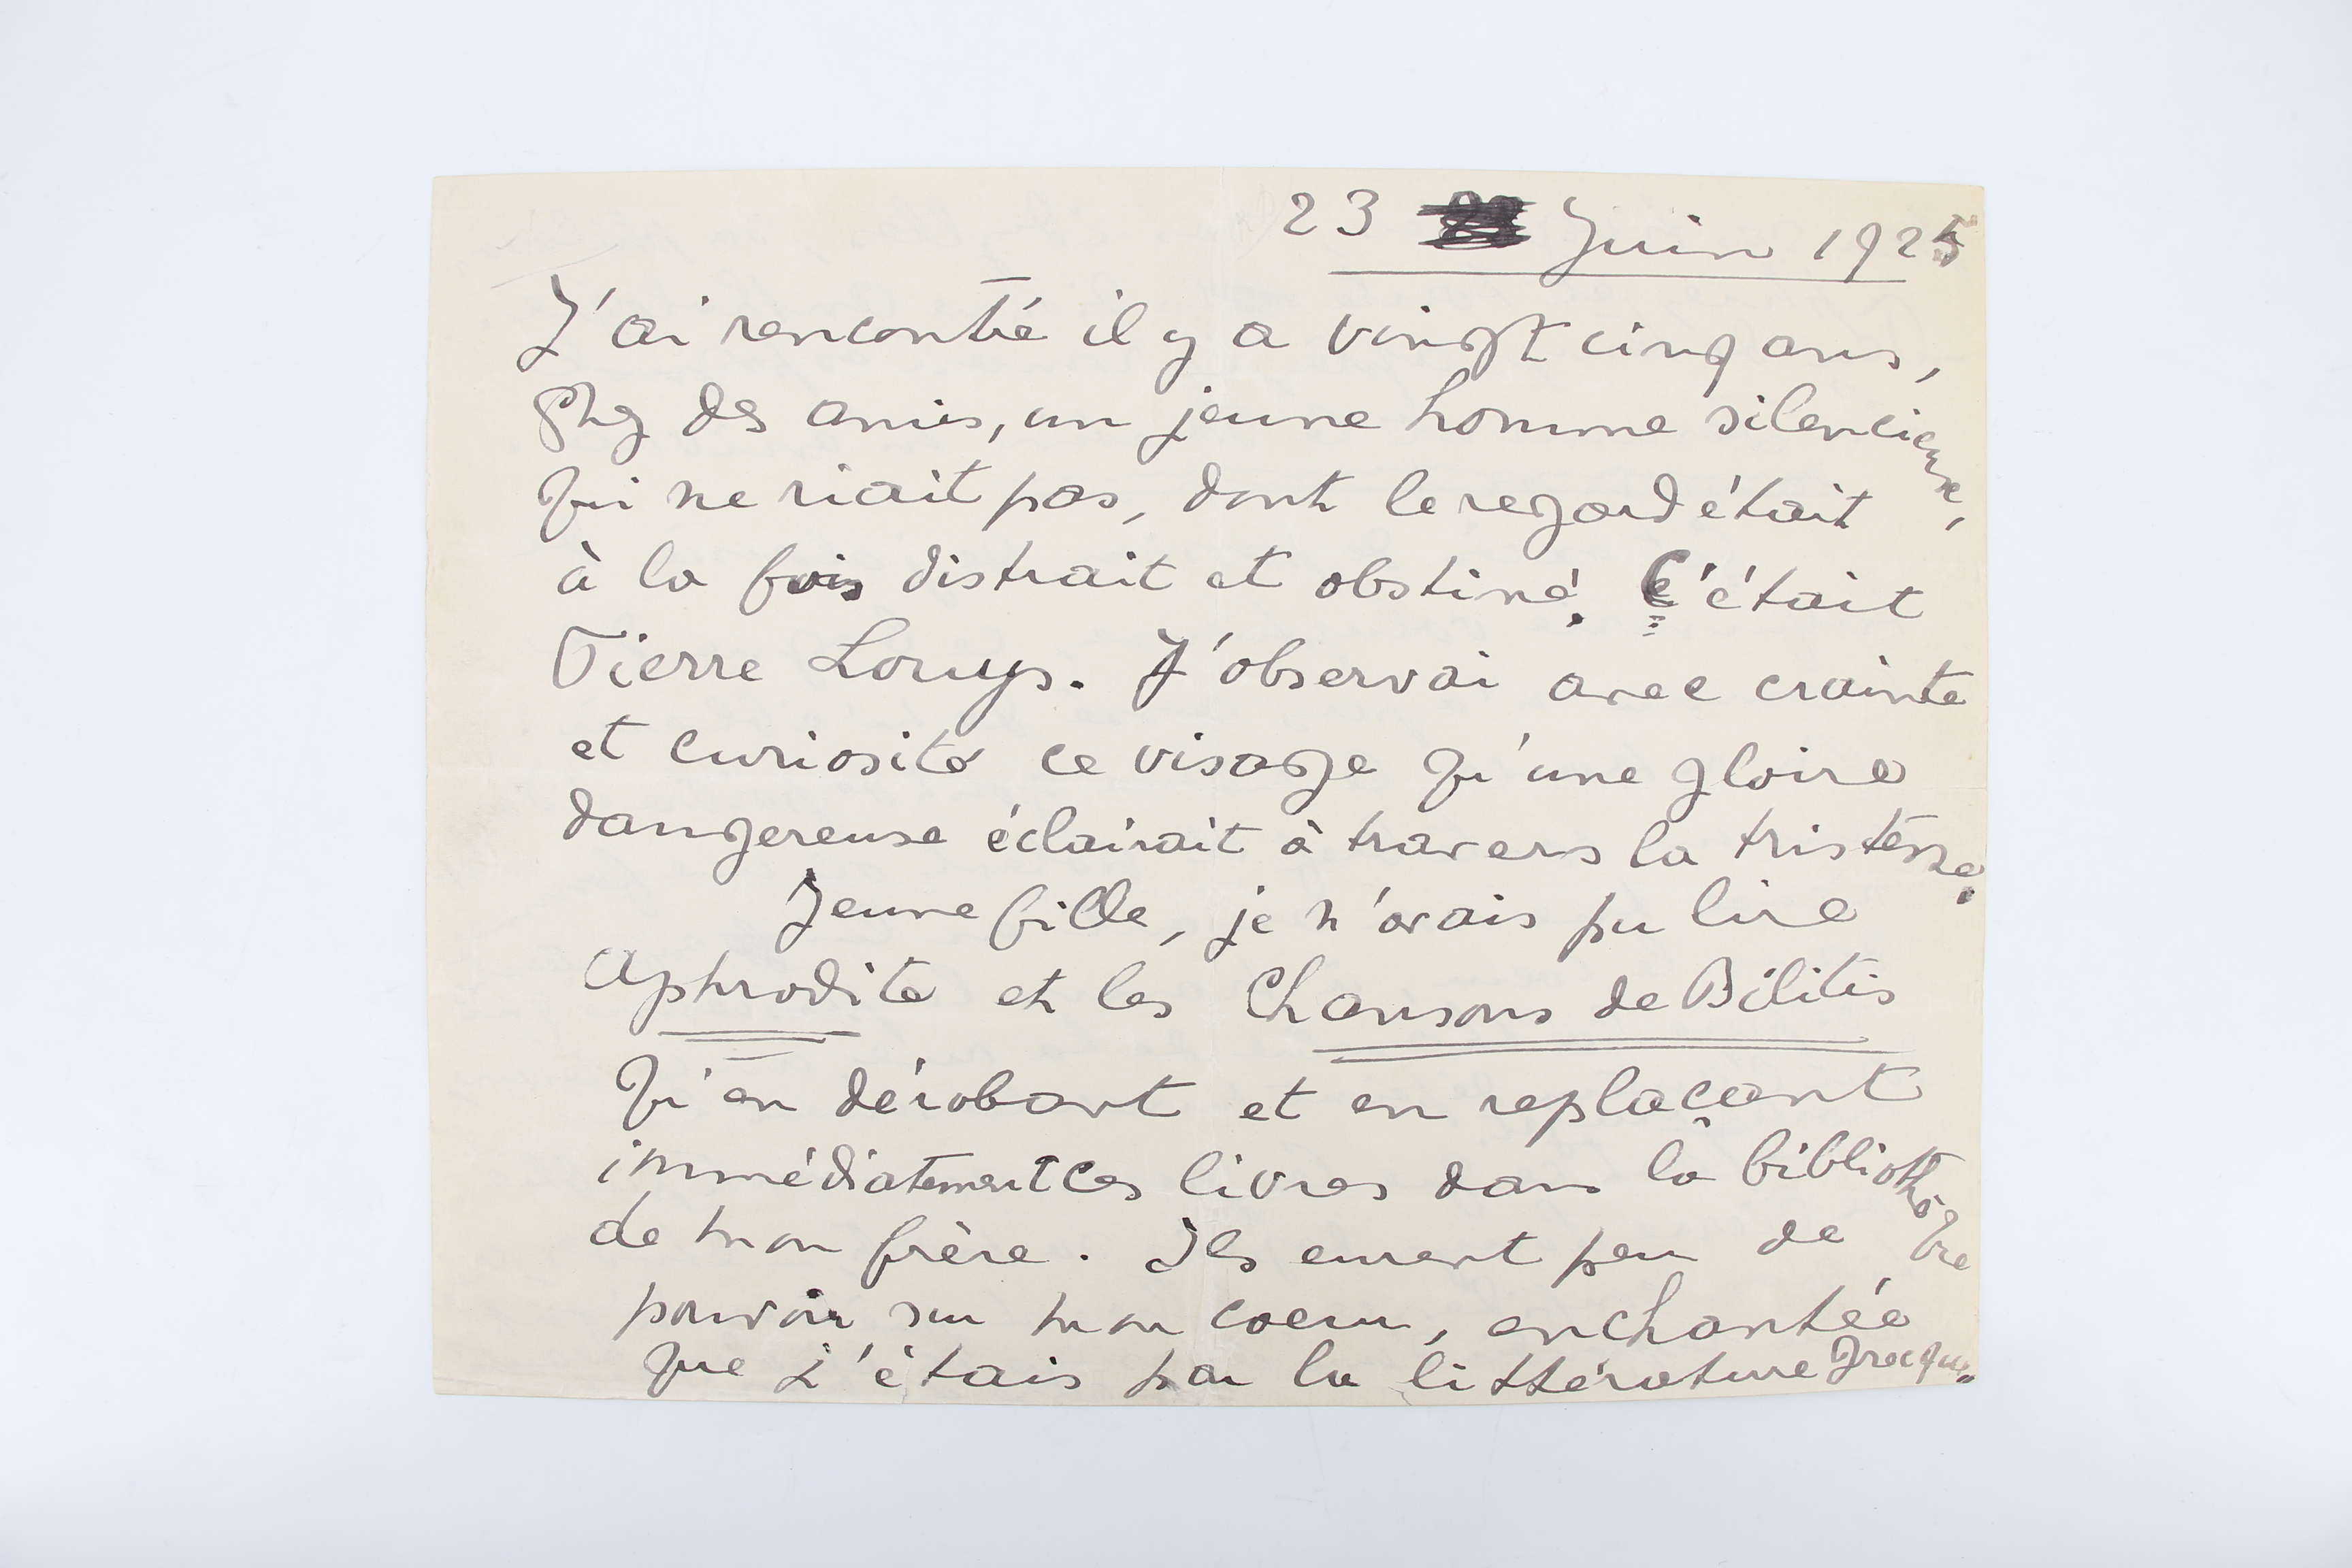 23 Juin 1925
J'ai rencontré il y a vingt cinq ans,
chez des amis, un jeune homme silencieux,
qui ne riait pas, dont le regard était
à la fois distrait et obstiné. C'était
Pierre Louys. J'observai avec crainte
et curiosité ce visage qu'une gloire
dangereuse éclairait à travers la tristesse.
Jeune fille, je n'avais pu lire
Aphrodite et les Chansons de Bilitis
qu'en dérobant et en replaçant
immédiatement ces livres dans la bibliothèque
de mon frère. Ils eurent peu de
pouvoir sur mon coeur, enchantée
que j'étais par la littérature grecque.